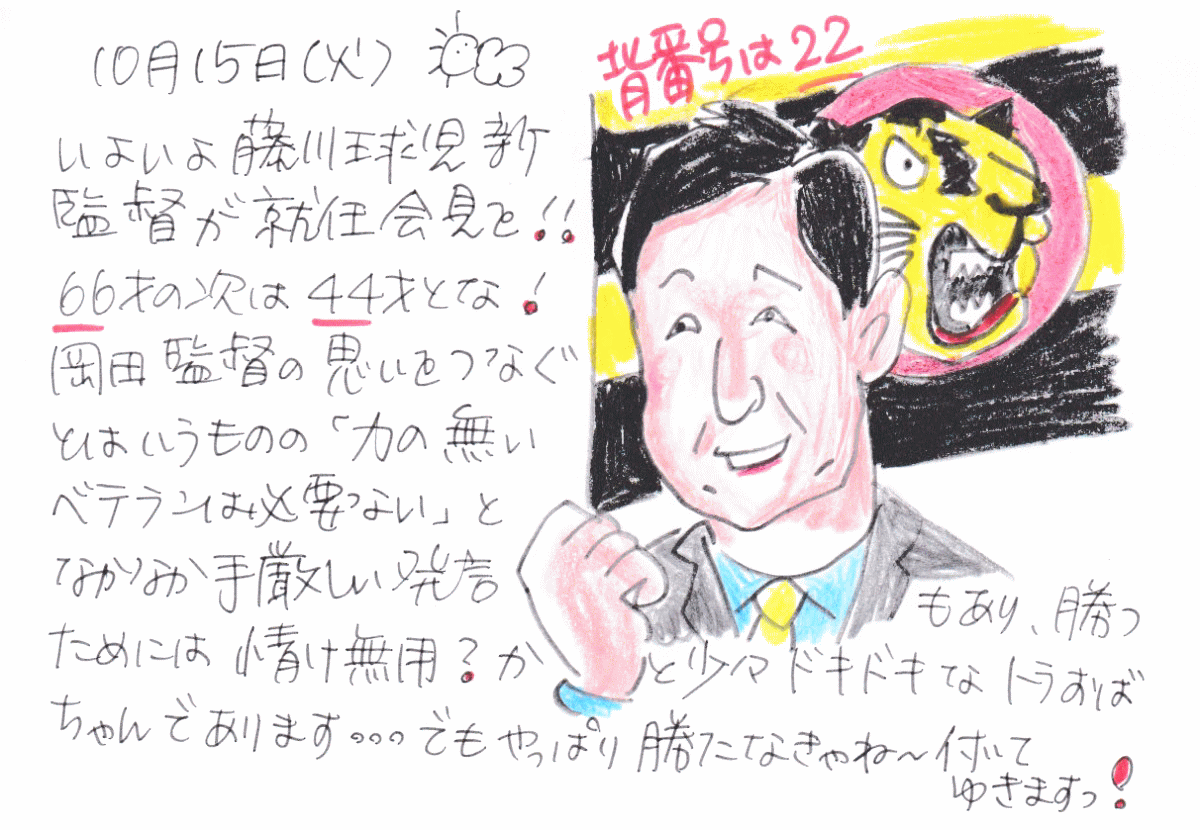 10月15日(火)
背番号は22
いよいよ藤川球児新
監督が就任会見を!!
66才の次は44才とな!
岡田監督の思いをつなぐ
とはいうものの「力の無い
ベテランは必要ない」と
なかなか手厳しい発言
もあり、勝つ
ためには情け無用?か
と少々ドキドキなトラおば
ちゃんであります。。。でもやっぱり勝たなきゃね〜付いて
ゆきますっ!